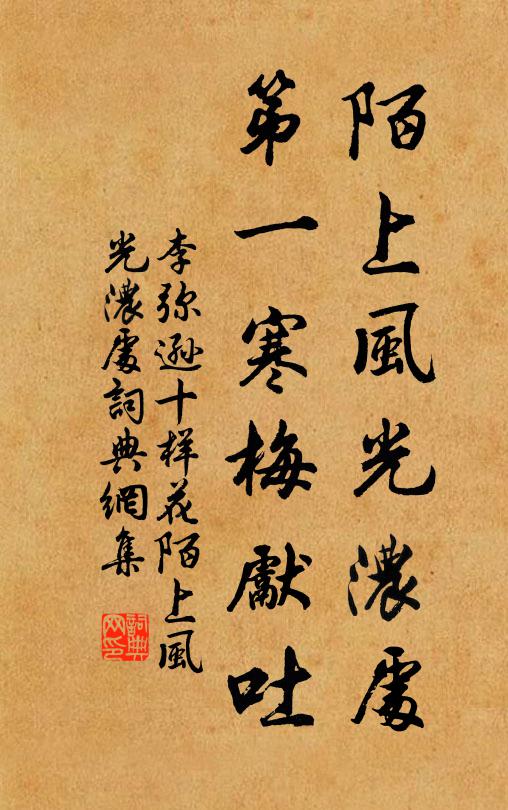 陌上風光濃處
第一寒梅獻吐
李弥遜十样花陌上風
光濃處詞典網集
詞典网印